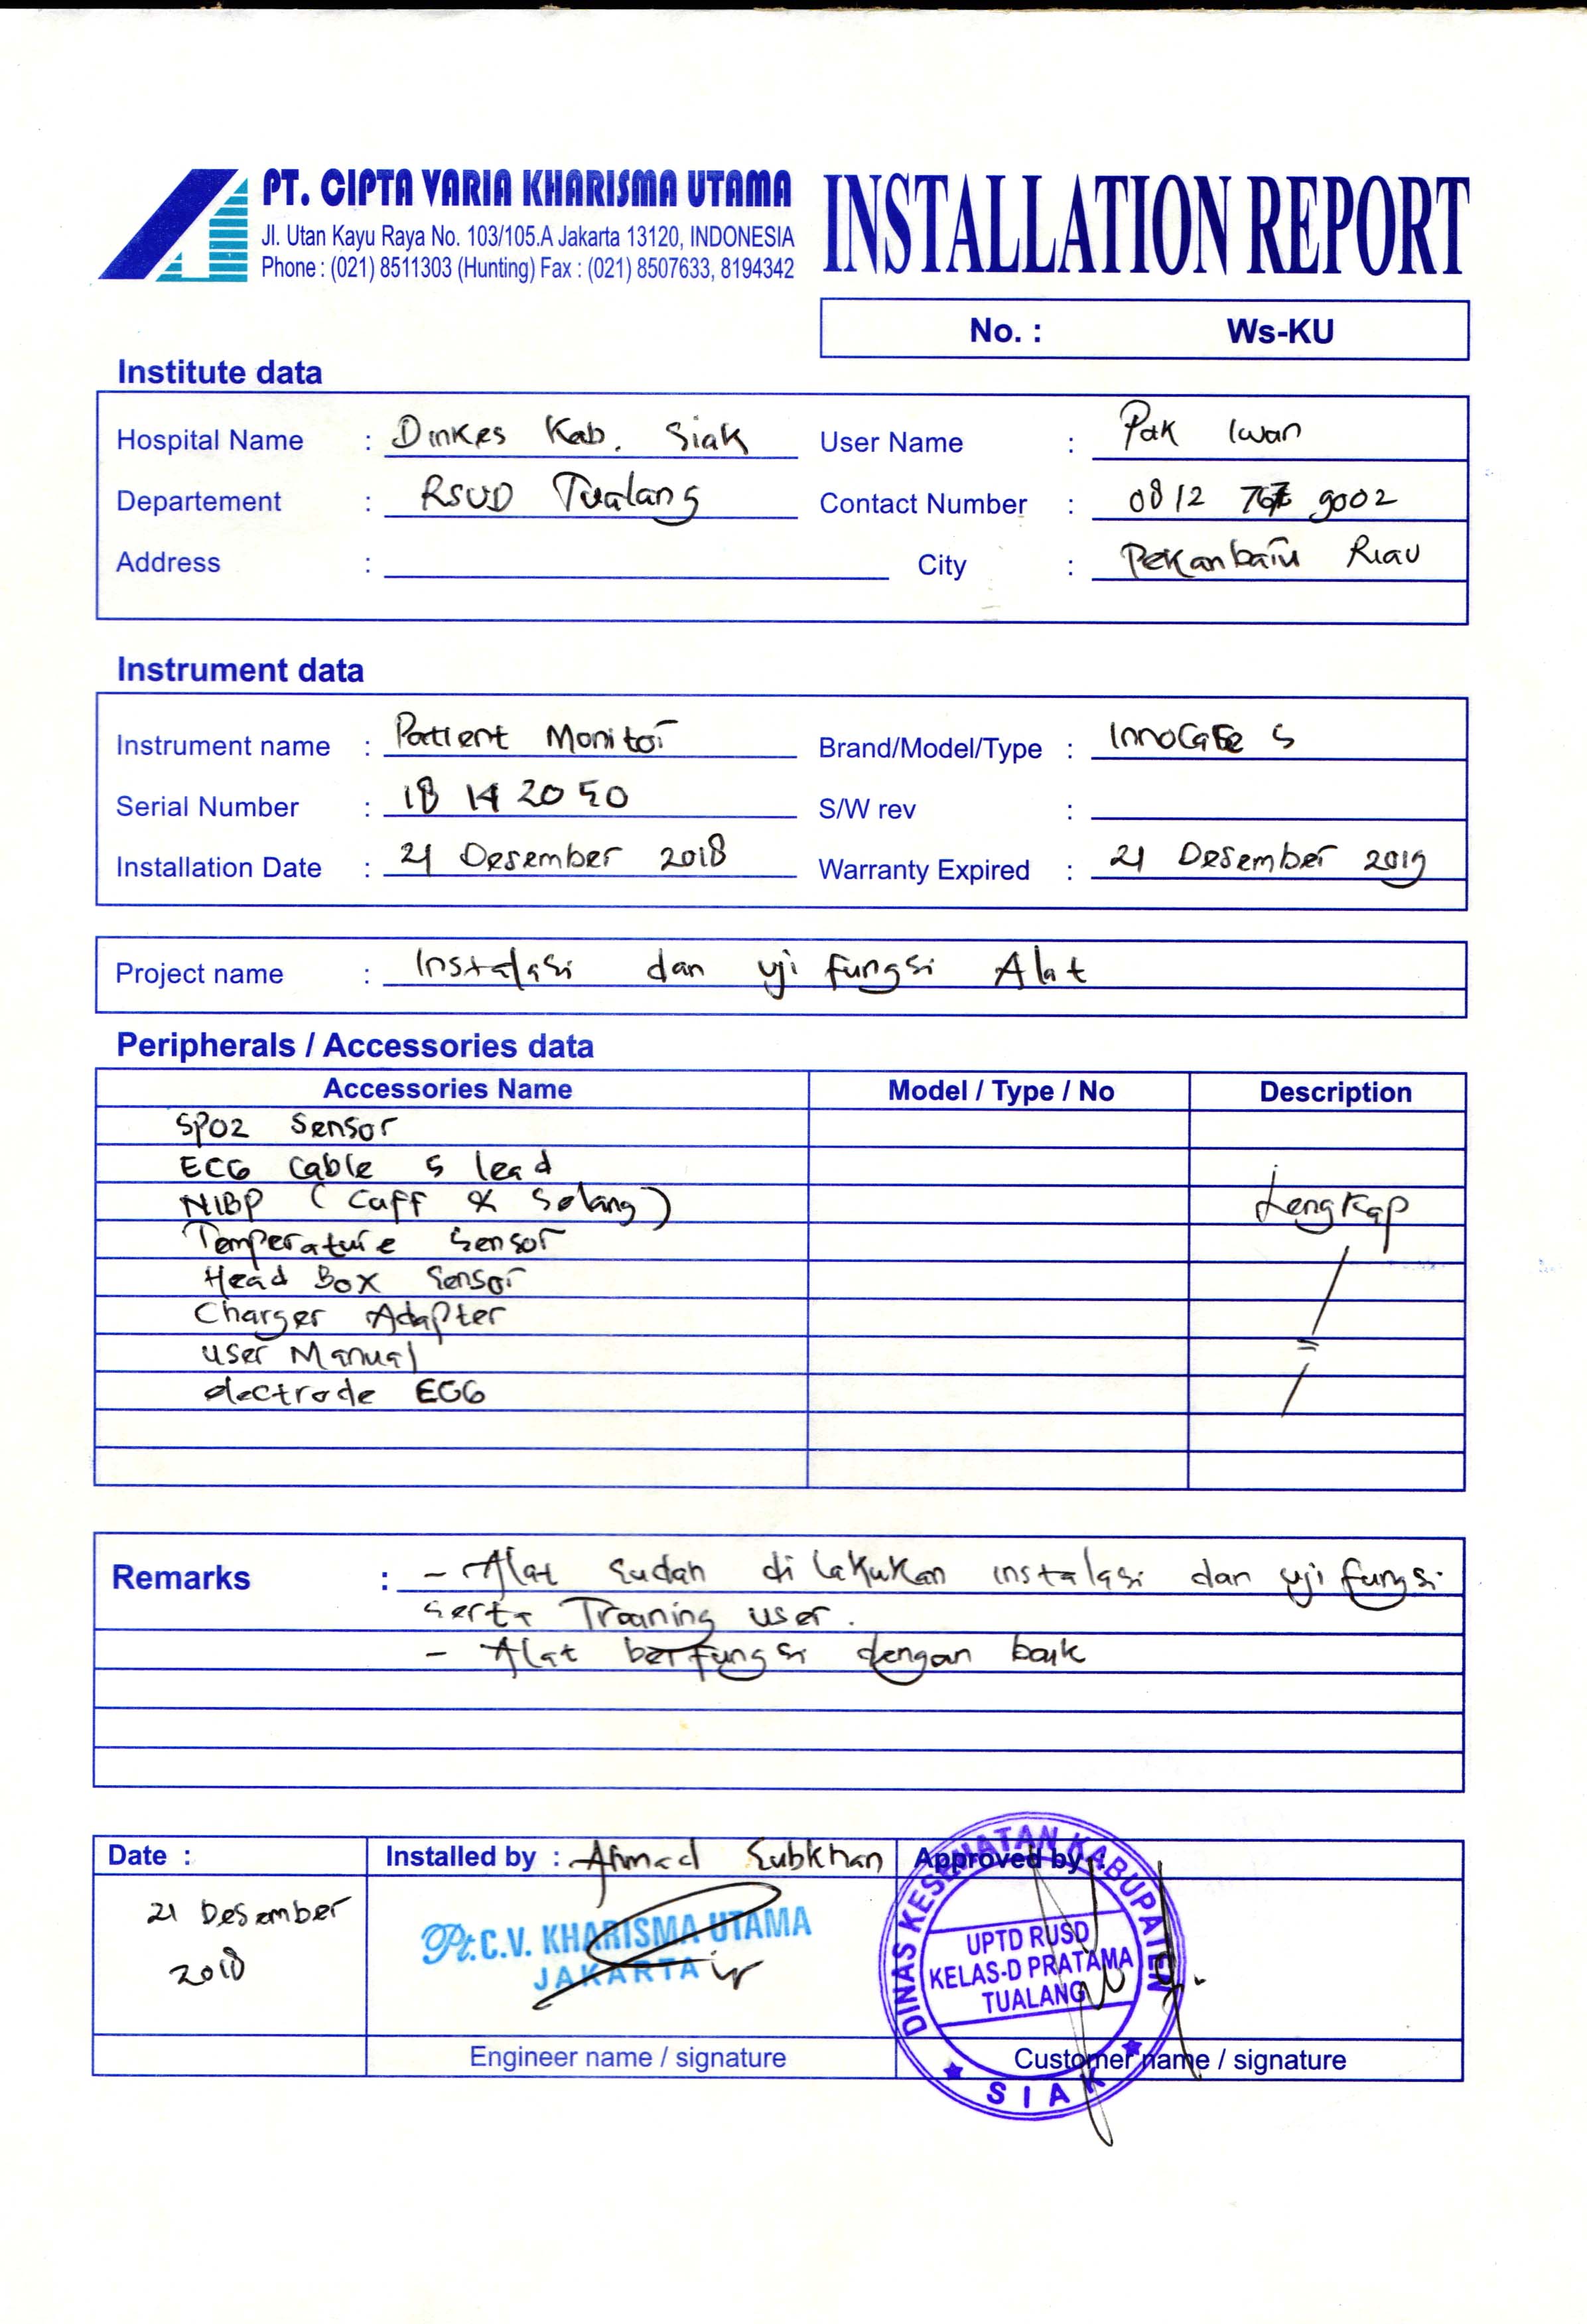 PT. CIPTA VARIA KHARISMA UTAMA
Jl. Utan Kayu Raya No. 103/105.A Jakarta 13120, INDONESIA
Phone : (021) 8511303 (Hunting) Fax : (021) 8507633, 8194342
INSTALLATION REPORT
No. : Ws-KU
Institute data
Hospital Name : Dinkes Kab. Siak User Name : Pak Iwan
Departement : RSUD Tualang Contact Number : 0812 9002
Address : City : Pekanbaru Riau
Instrument data
Instrument name : Patient Monitor Brand/Model/Type : InnoCare S
Serial Number : 18 14 20 50 S/W rev :
Installation Date : 21 Desember 2018 Warranty Expired : 21 Desember 2019
Project name : Instalasi dan uji fungsi Alat
Peripherals / Accessories data
Accessories Name Model / Type / No Description
SPO2 Sensor
ECG Cable 5 lead
NIBP ( Caff & Selang ) Lengkap
Temperature Sensor
Head Box Sensor
Charger Adapter
user Manual
electrode ECG
Remarks : - Alat sudah di lakukan instalasi dan uji fungsi
serta Traning user.
- Alat berfungsi dengan baik
Date : Installed by : Ahmad Subkhan Approved by :
21 Desember
2018
Pt. C.V. KHARISMA UTAMA
JAKARTA
DINAS KESEHATAN KABUPATEN
UPTD RUSD
KELAS-D PRATAMA
TUALANG
SIAK
Engineer name / signature Customer name / signature